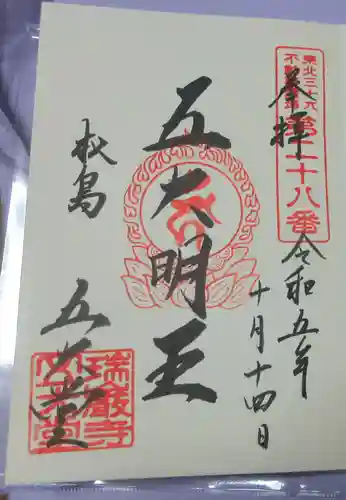 東北三十六
不動尊霊場
第二十八番
奉拝
令和五年
十月十四日
五大明王
松島
五大堂
瑞巌寺
五大堂